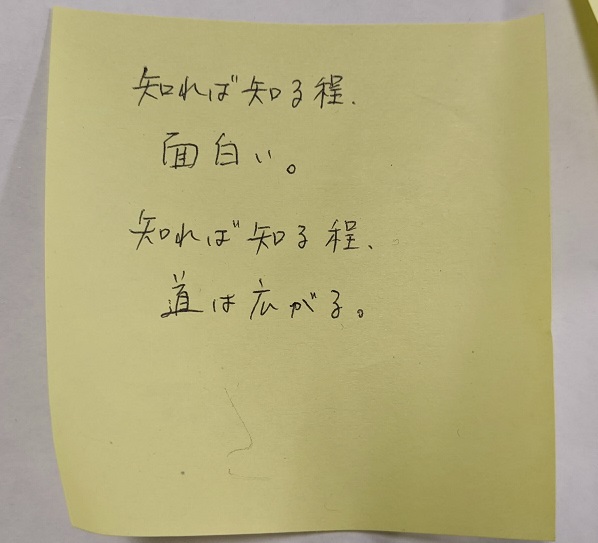 知れば知る程、
面白い。
知れば知る程、
道は広がる。